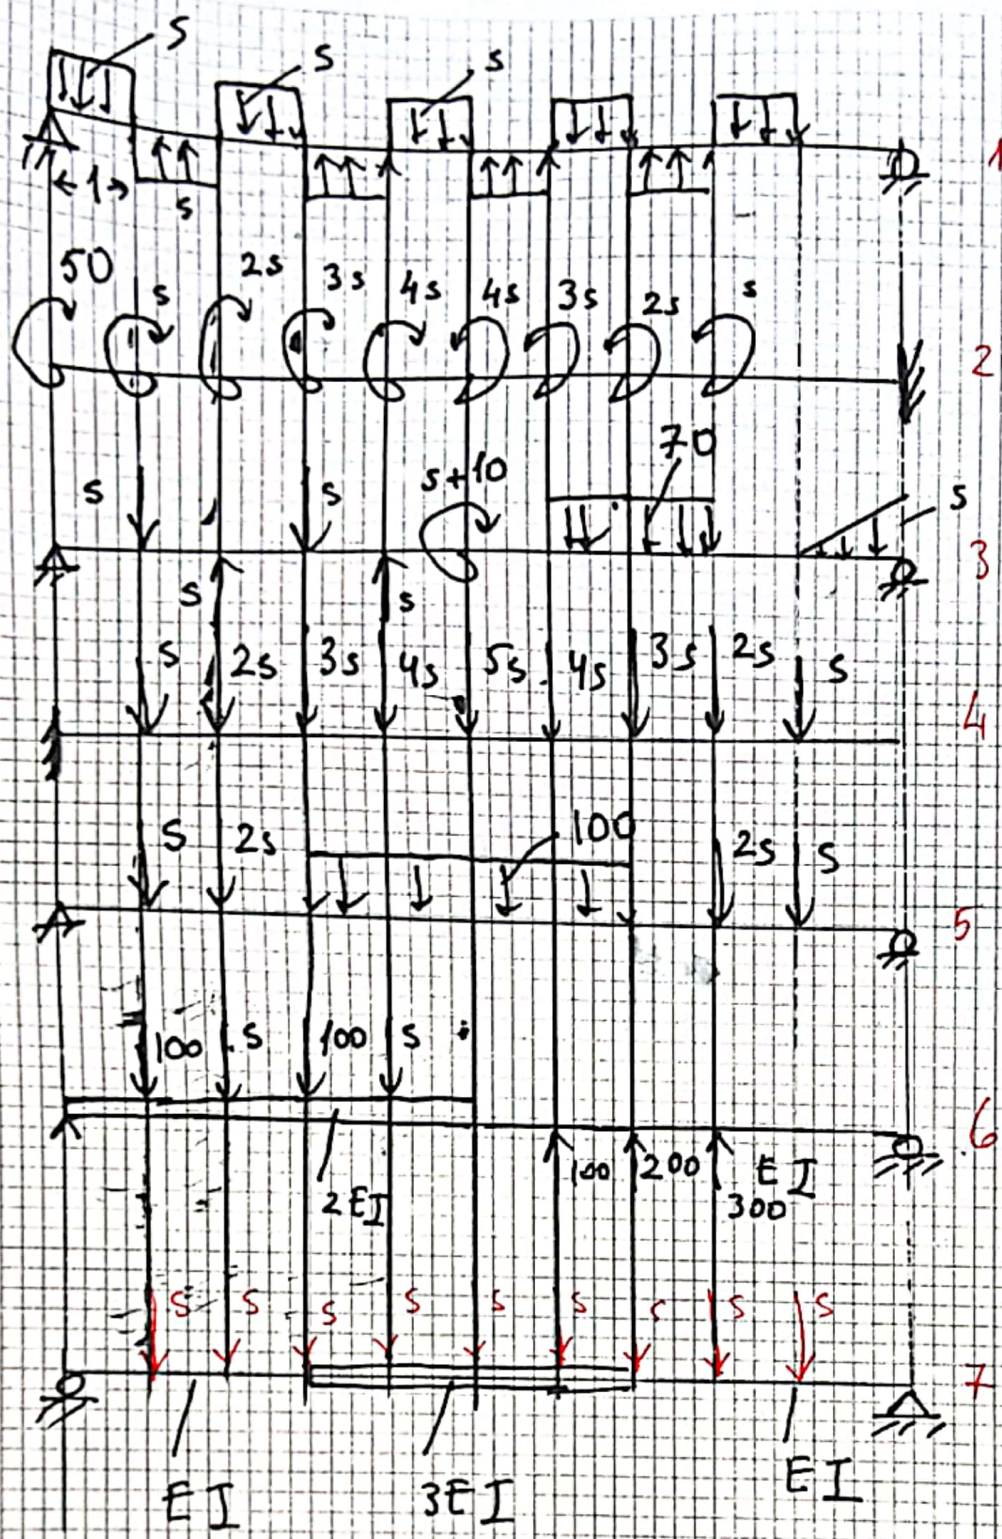 s
s
s
1
1
s
50
s
2s
3s
4s
4s
3s
2s
s
2
s
s
s+10
70
s
3
s
s
s
2s
3s
4s
5s
4s
3s
2s
s
4
s
2s
100
2s
s
5
100
s
100
s
6
2EI
100
200
300
EI
s
s
s
s
s
s
s
s
s
7
EI
3EI
EI